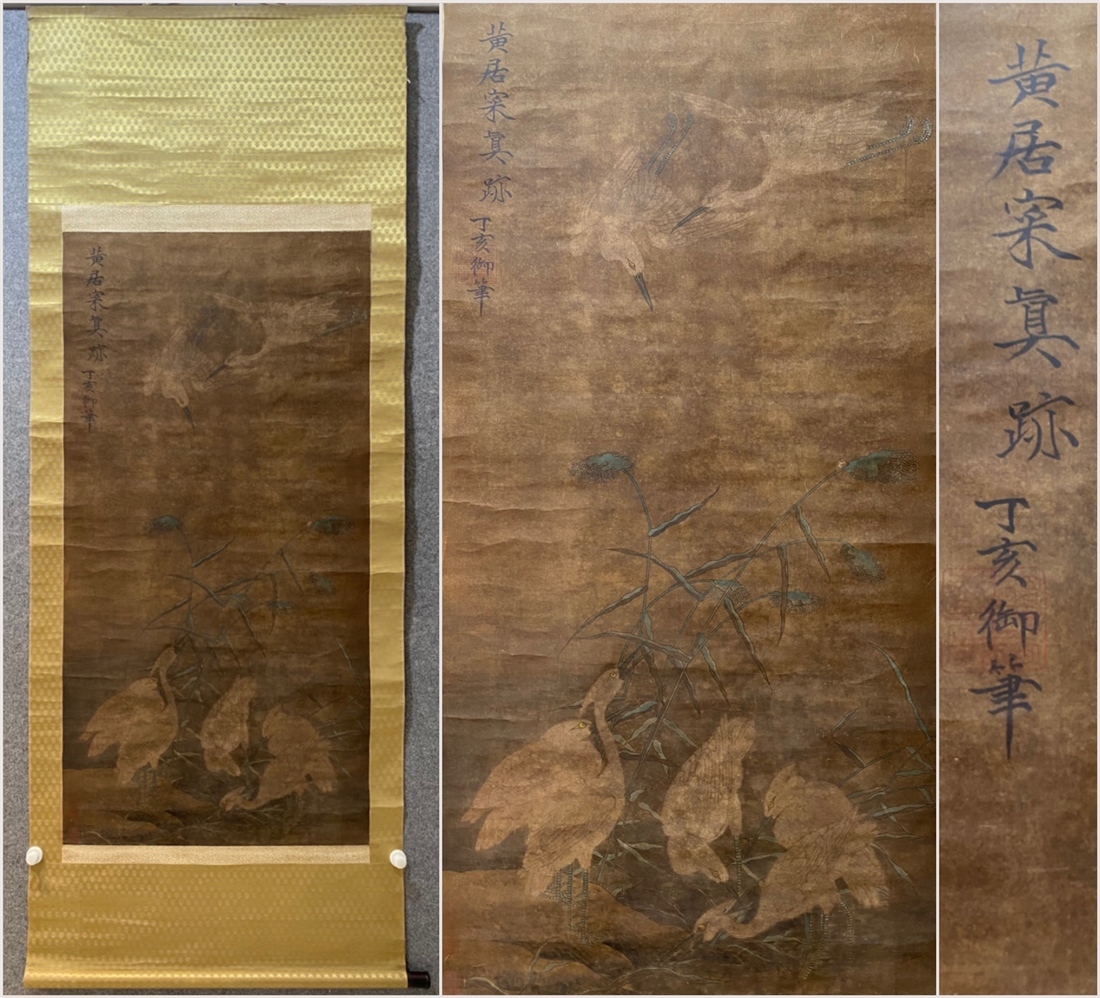 黃居寀真跡
丁亥御筆
黃居寀真跡
丁亥御筆
黃居寀真跡
丁亥御筆